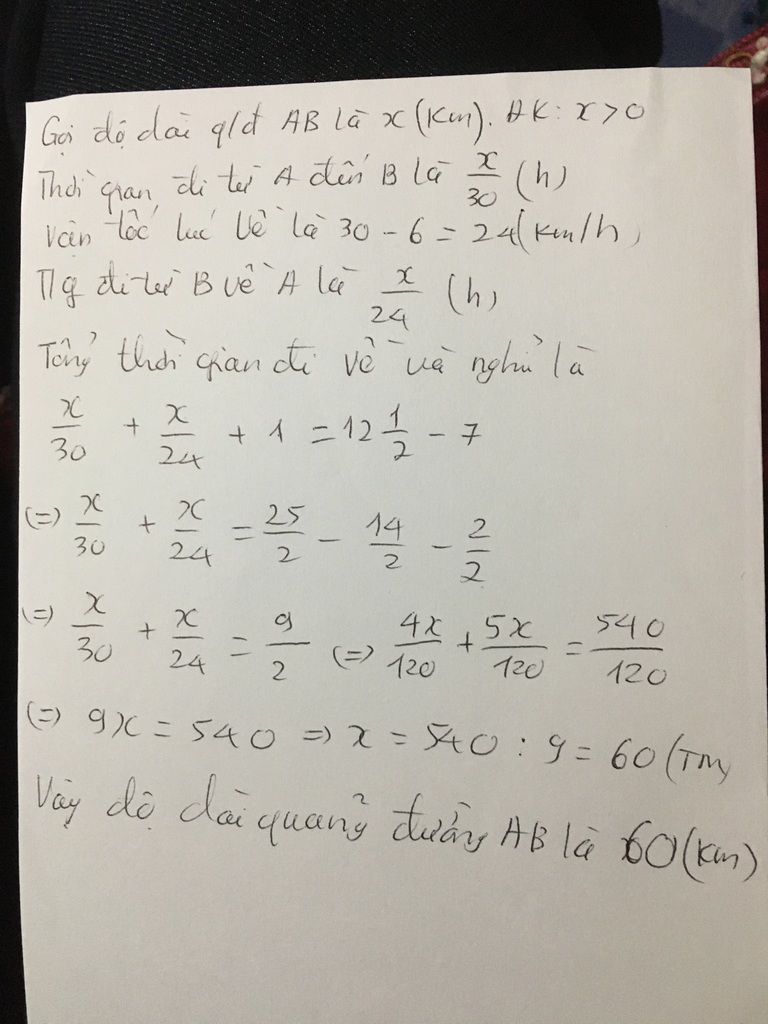 Gọi độ dài q/đ AB là x (Km). ĐK: x > 0
Thời gian đi từ A đến B là x/30 (h)
Vận tốc lúc về là 30 - 6 = 24 (Km/h)
T/g đi từ B về A là x/24 (h)
Tổng thời gian đi về và nghỉ là
x/30 + x/24 + 1 = 12 1/2 - 7
(=) x/30 + x/24 = 25/2 - 14/2 - 2/2
(=) x/30 + x/24 = 9/2 (=) 4x/120 + 5x/120 = 540/120
(=) 9x = 540 => x = 540 : 9 = 60 (TM)
Vậy độ dài quảng đường AB là 60 (Km)